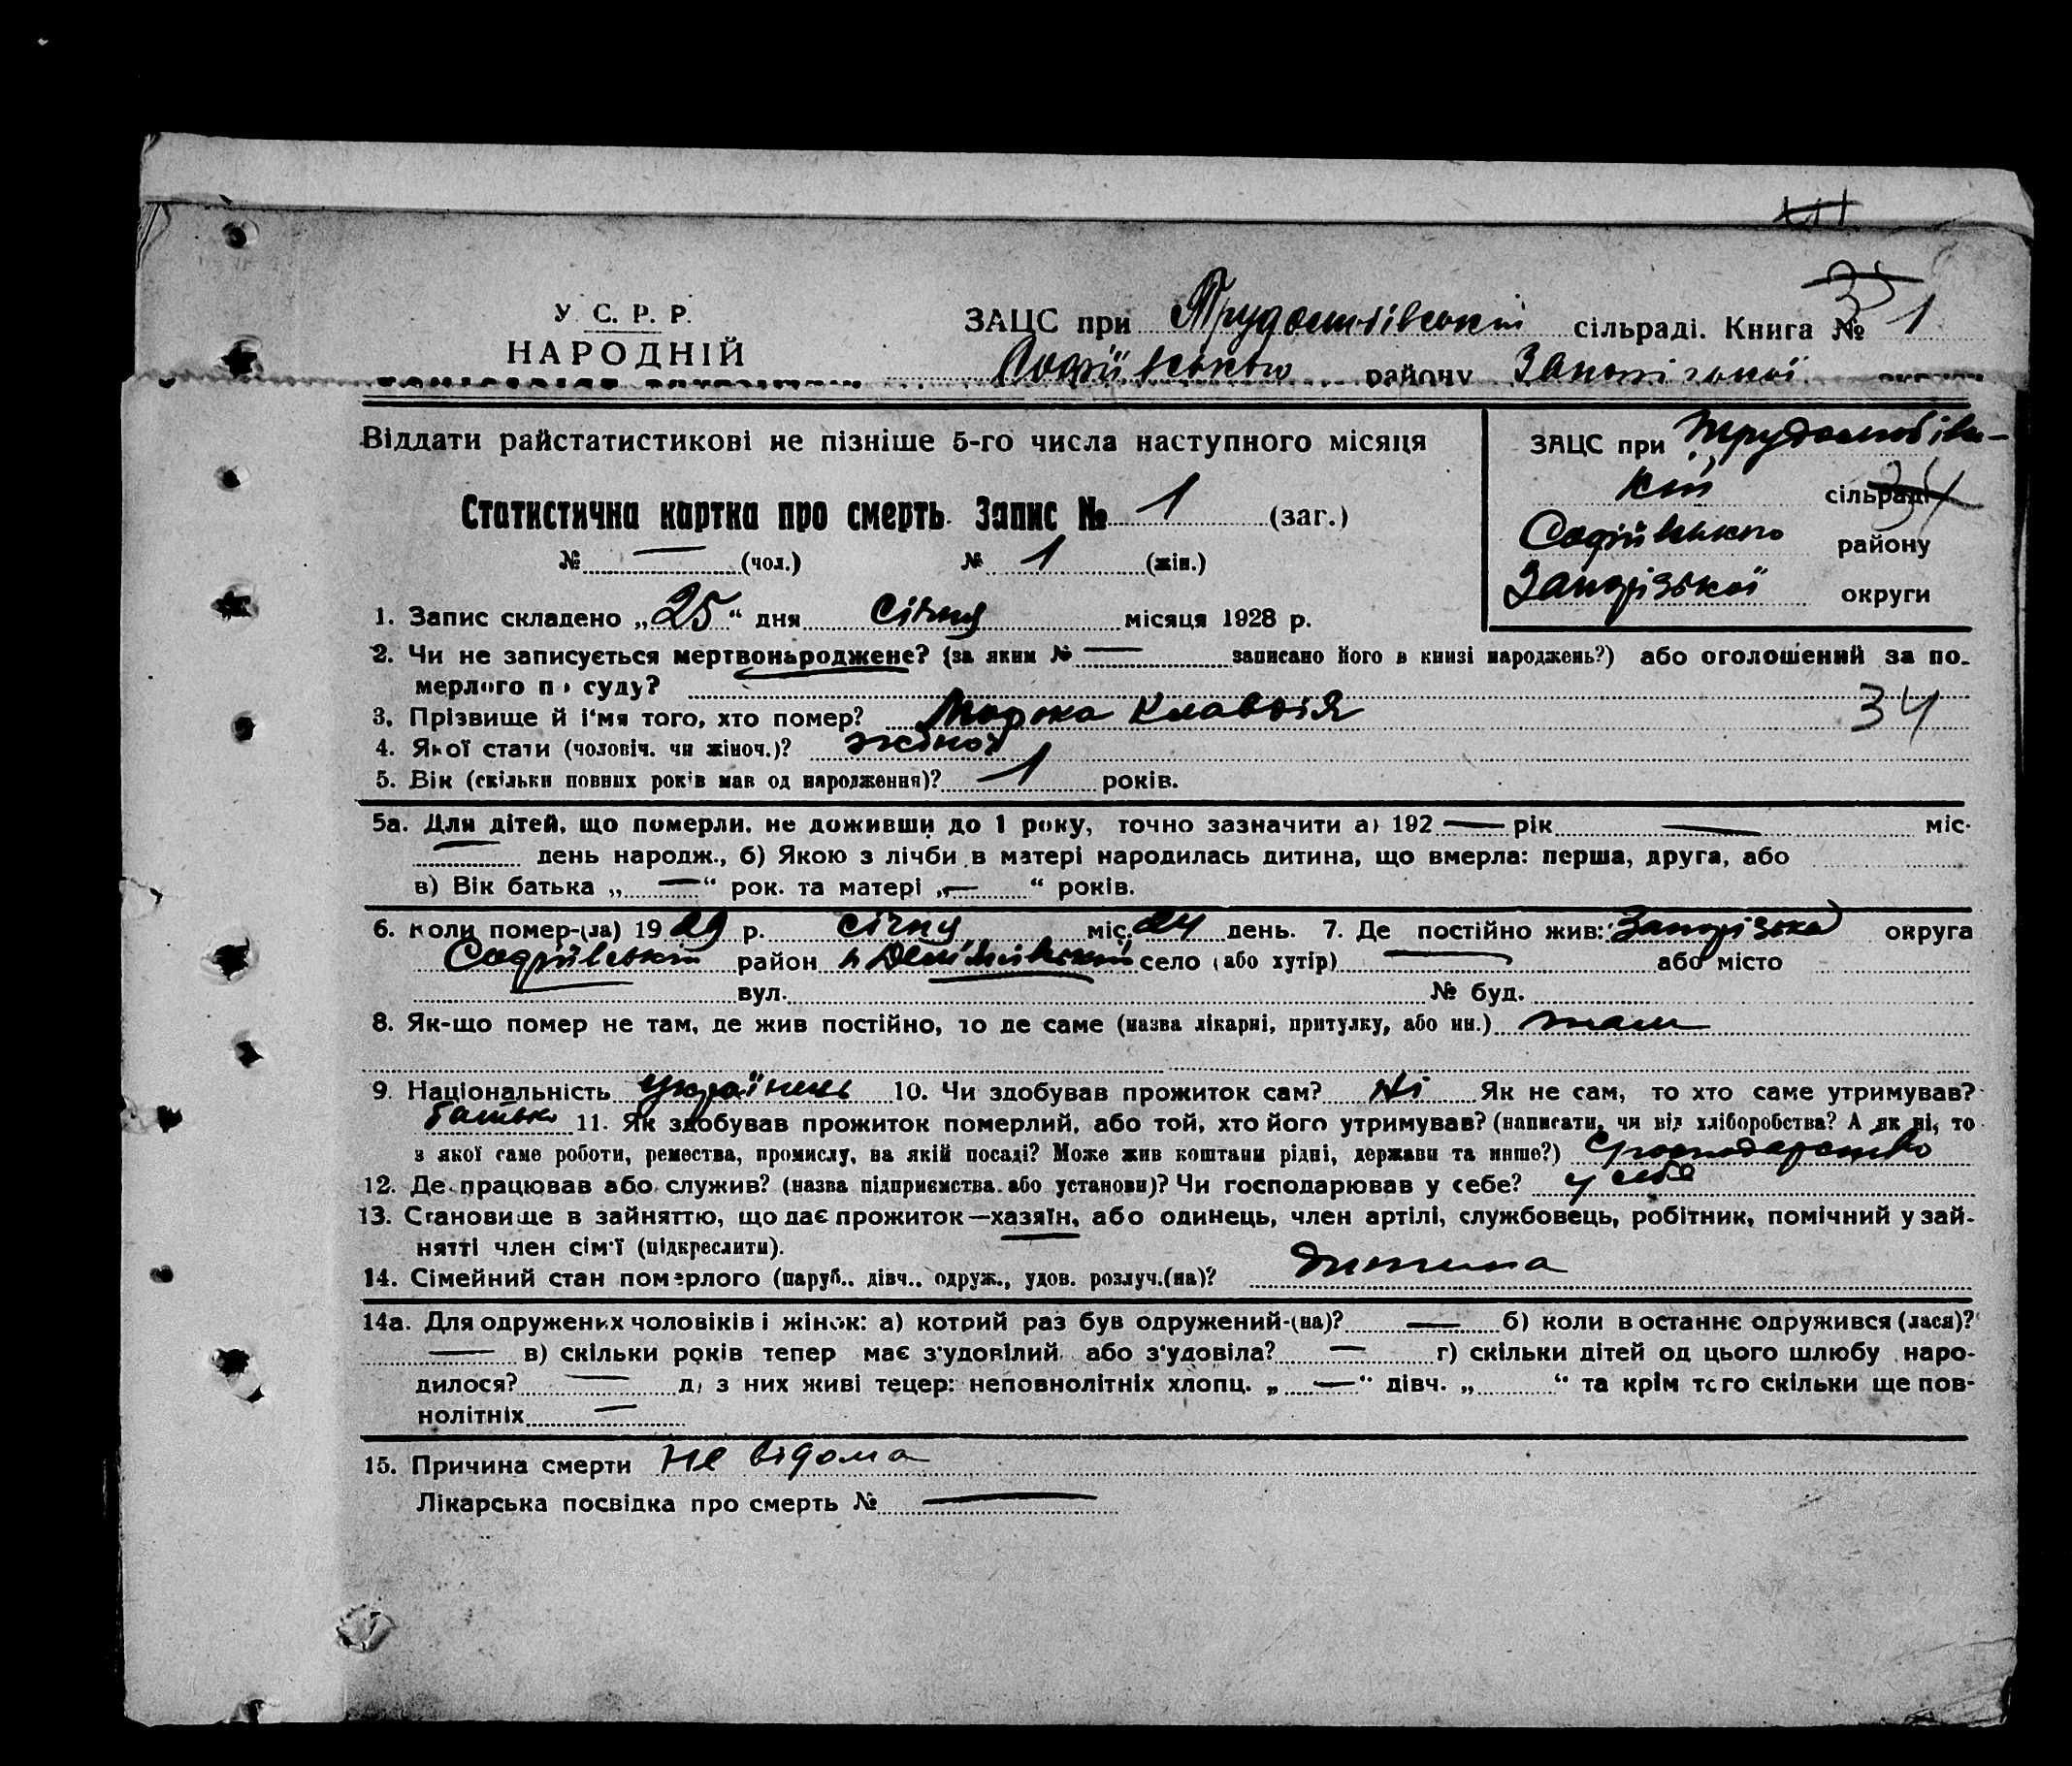 У. С. Р. Р.
НАРОДНІЙ
ЗАЦС при Трудолюбівській сільраді. Книга № 1
Софіївського району Запорізької
Віддати райстатистикові не пізніше 5-го числа наступного місяця
ЗАЦС при Трудолюбівсь-
кій сільраді
34
Софіївського району
Запорізької округи
Статистична картка про смерть. Запис № 1 (заг.)
№ — (чол.) № 1 (жін.)
1. Запис складено „25“ дня січня місяця 1928 р.
2. Чи не записується мертвонароджене? (за яким № — записано його в книзі народжень?) або оголошений за по-
мерлого по суду?
3. Прізвище й і'мя того, хто помер? Морока Клавдія
34
4. Якої стати (чоловіч. чи жіноч.)? жіноч
5. Вік (скільки повних років мав од народження)? 1 років.
5а. Для дітей, що померли, не доживши до 1 року, точно зазначити а) 192 — рік — міс.
— день народж., б) Якою з лічби в матері народилась дитина, що вмерла: перша, друга, або
в) Вік батька „—“ рок. та матері „—“ років.
6. Коли помер-(ла) 1929 р. січня міс. 24 день. 7. Де постійно жив: Запорізька округа
Софіївський район село (або хутір) — або місто
вул. № буд.
8. Як-що помер не там, де жив постійно, то де саме (назва лікарні, притулку, або ин.) там
9. Національність українець 10. Чи здобував прожиток сам? Ні Як не сам, то хто саме утримував?
батько 11. Як здобував прожиток померлий, або той, хто його утримував? (написати, чи від хліборобства? А як ні, то
з якої саме роботи, ремества, промислу, на якій посаді? Може жив коштами рідні, держави та инше?) Господарство
12. Де працював або служив? (назва підприємства або установи)? Чи господарював у себе? у себе
13. Становище в зайняттю, що дає прожиток—хазяїн, або одинець, член артілі, службовець, робітник, помічний у зай-
нятті член сім'ї (підкреслити).
14. Сімейний стан померлого (паруб., дівч., одруж., удов. розлуч.(на)? дитина
14а. Для одружених чоловіків і жінок: а) котрий раз був одружений-(на)? — б) коли востаннє одружився (лася)?
— в) скільки років тепер має з'удовілий або з'удовіла? — г) скільки дітей од цього шлюбу наро-
дилося? — д) з них живі тепер: неповнолітніх хлопц. „—“ дівч. „ “ та крім того скільки ще пов-
нолітніх —
15. Причина смерти Не відома
Лікарська посвідка про смерть № —